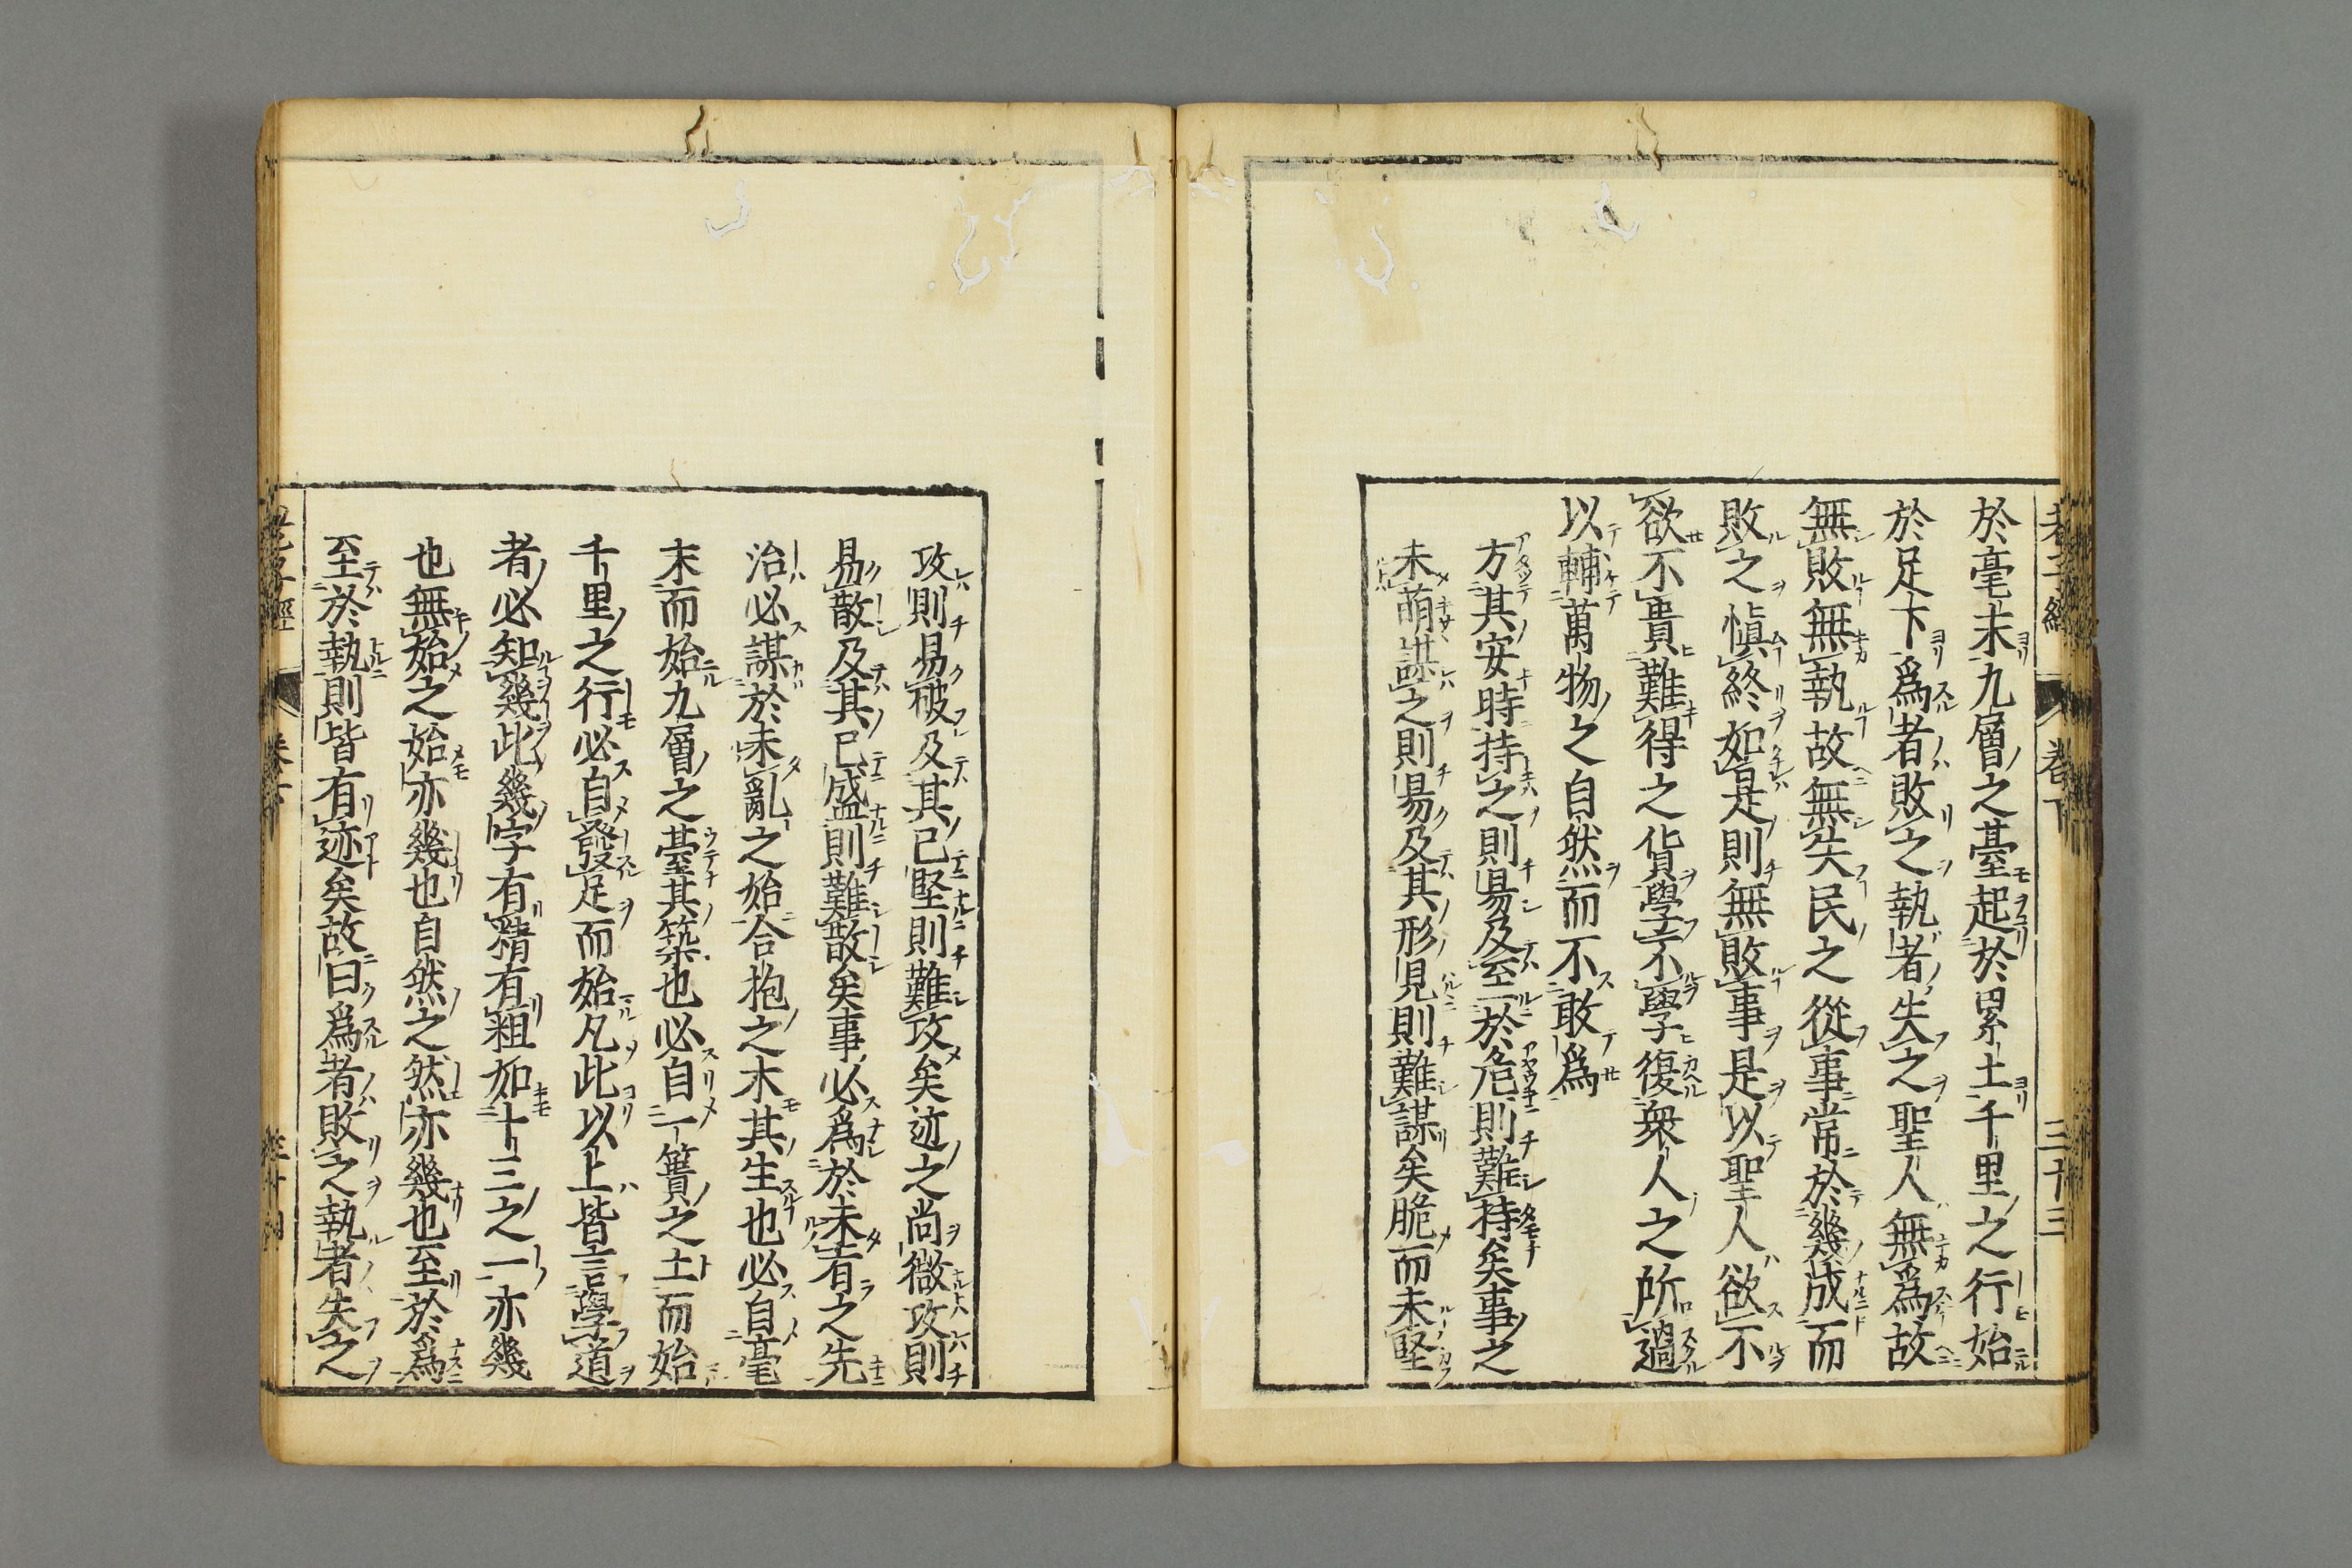 老子經 卷下 三十三
於毫末九層之臺起於累土千里之行始
於足下爲者敗之執者失之聖人無爲故
無敗無執故無失民之從事常於幾成而
敗之愼終如是則無敗事是以聖人欲不
欲不貴難得之貨學不學復衆人之所過
以輔萬物之自然而不敢爲
方其安時持之則易及至於危則難持矣事之
未萌謀之則易及其形見則難謀矣脆而未堅
攻則易破及其已堅則難攻矣迹之尚微攻則
易散及其已盛則難散矣事必爲於未有之先
治必謀於未亂之始合抱之木其生也必自毫
末而始九層之臺其築也必自一簣之土而始
千里之行必自發足而始凡此以上皆言學道
者必知幾此幾字有精有粗如十三之一亦幾
也無始之始亦幾也自然之然亦幾也至於爲
至於執則皆有迹矣故曰爲者敗之執者失之
老子經 卷下